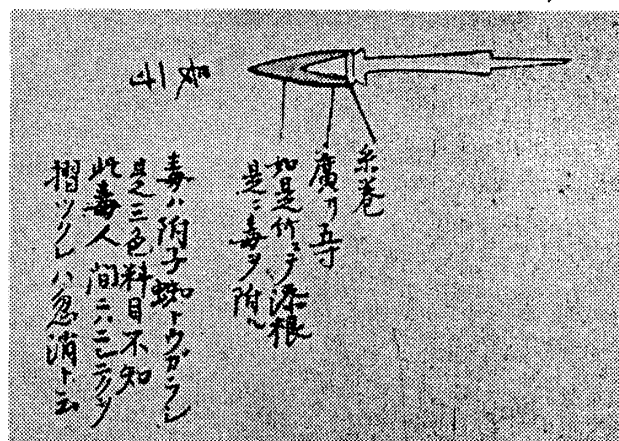 糸巻
廣サ五寸
如是竹ニテ添根
是ニ毒ヲ附ル
毒ハ附子蜘トウガラシ
是三色料目不知
此毒人間ニハニンニクヲ
摺ツクレハ忽消ト云